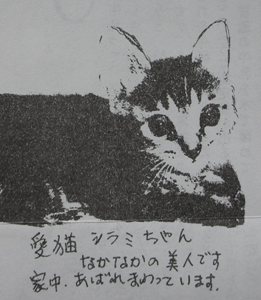 愛猫 シラミちゃん
なかなかの美人です
家中.あばれまわっています.